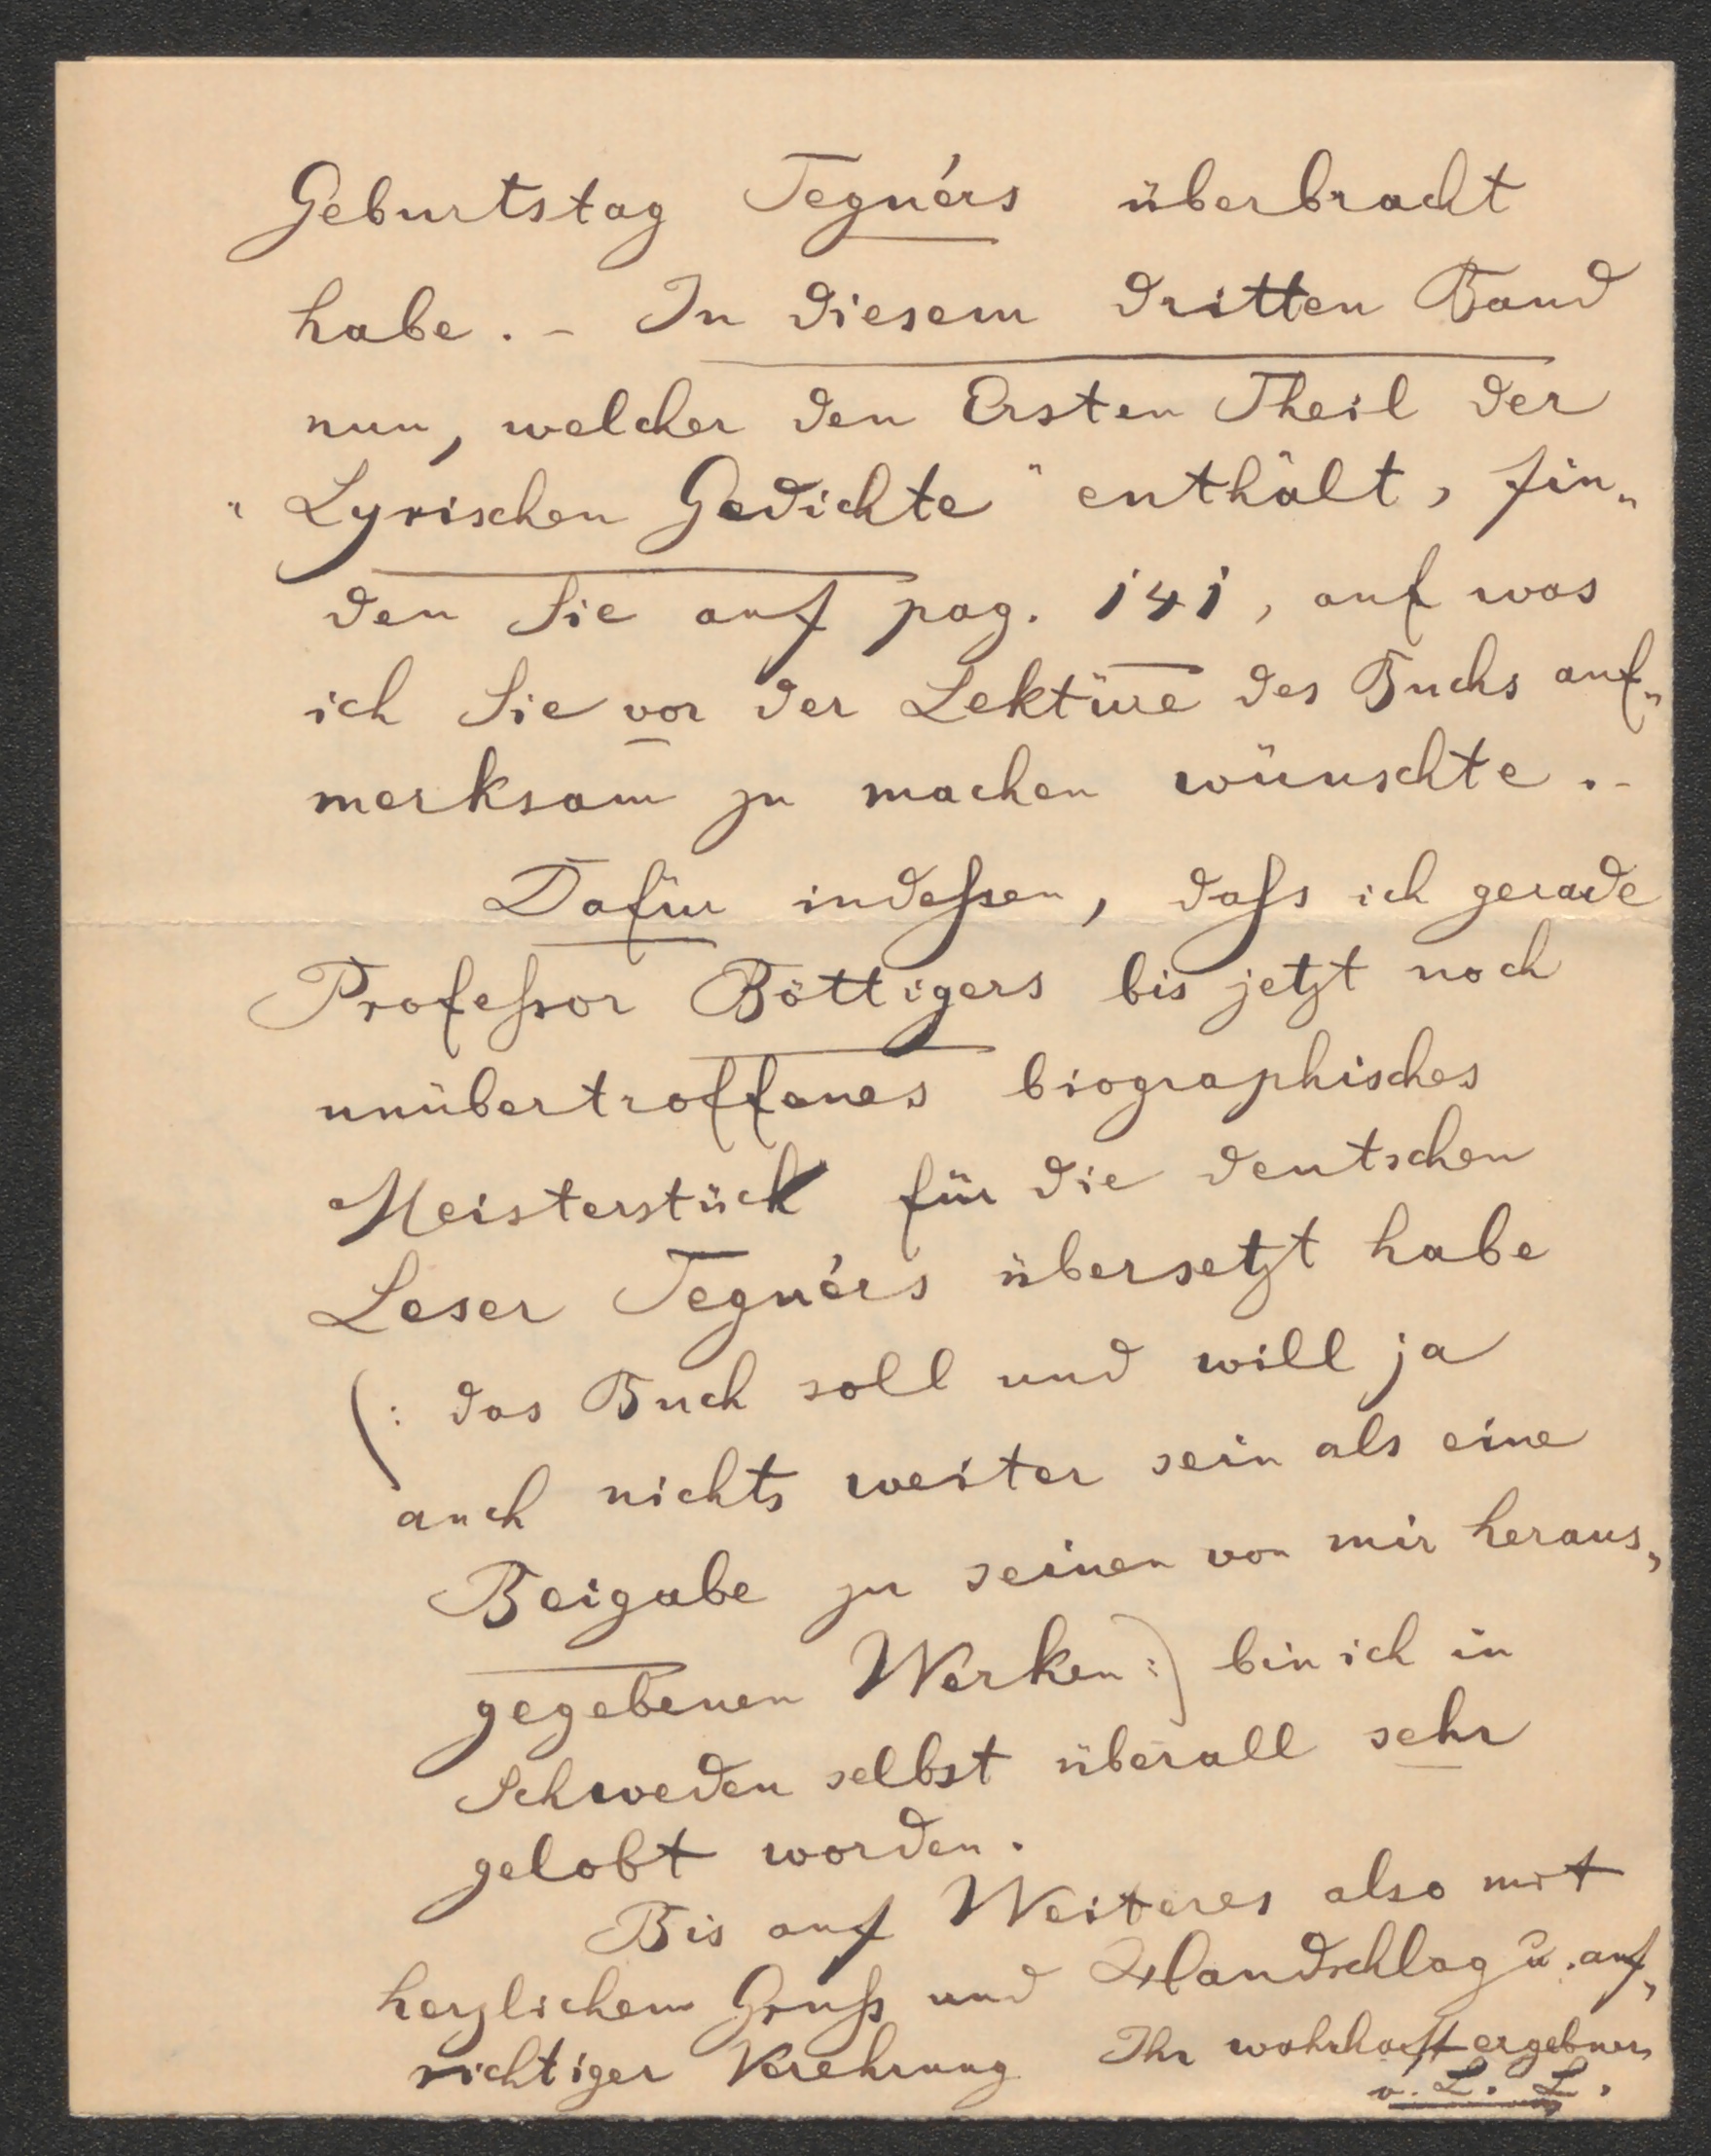 Geburtstag Tegnérs überbracht
habe. - In diesem dritten Band
nun, welcher den Ersten Theil der
„Lyrischen Gedichte" enthält, fin„
den Sie auf pag. 141, auf was
ich Sie vor der Lektüre des Buchs auf„
merksam zu machen wünschte. -
Dafür indeßen, daß ich gerade
Profeßor Böttigers bis jetzt noch
unübertroffenes biographisches
Meisterstück für die deutschen
Leser Tegnérs übersetzt habe
(: das Buch soll und will ja
auch nichts weiter sein als eine
Beigabe zu seinen von mir heraus„
gegebenen Werken :) bin ich in
Schweden selbst überall sehr
gelobt worden.
Bis auf Weiteres also mit
herzlichem Gruß und Handschlag u. auf„
richtiger Verehrung Ihr wahrhaft ergebner
v. L. L.